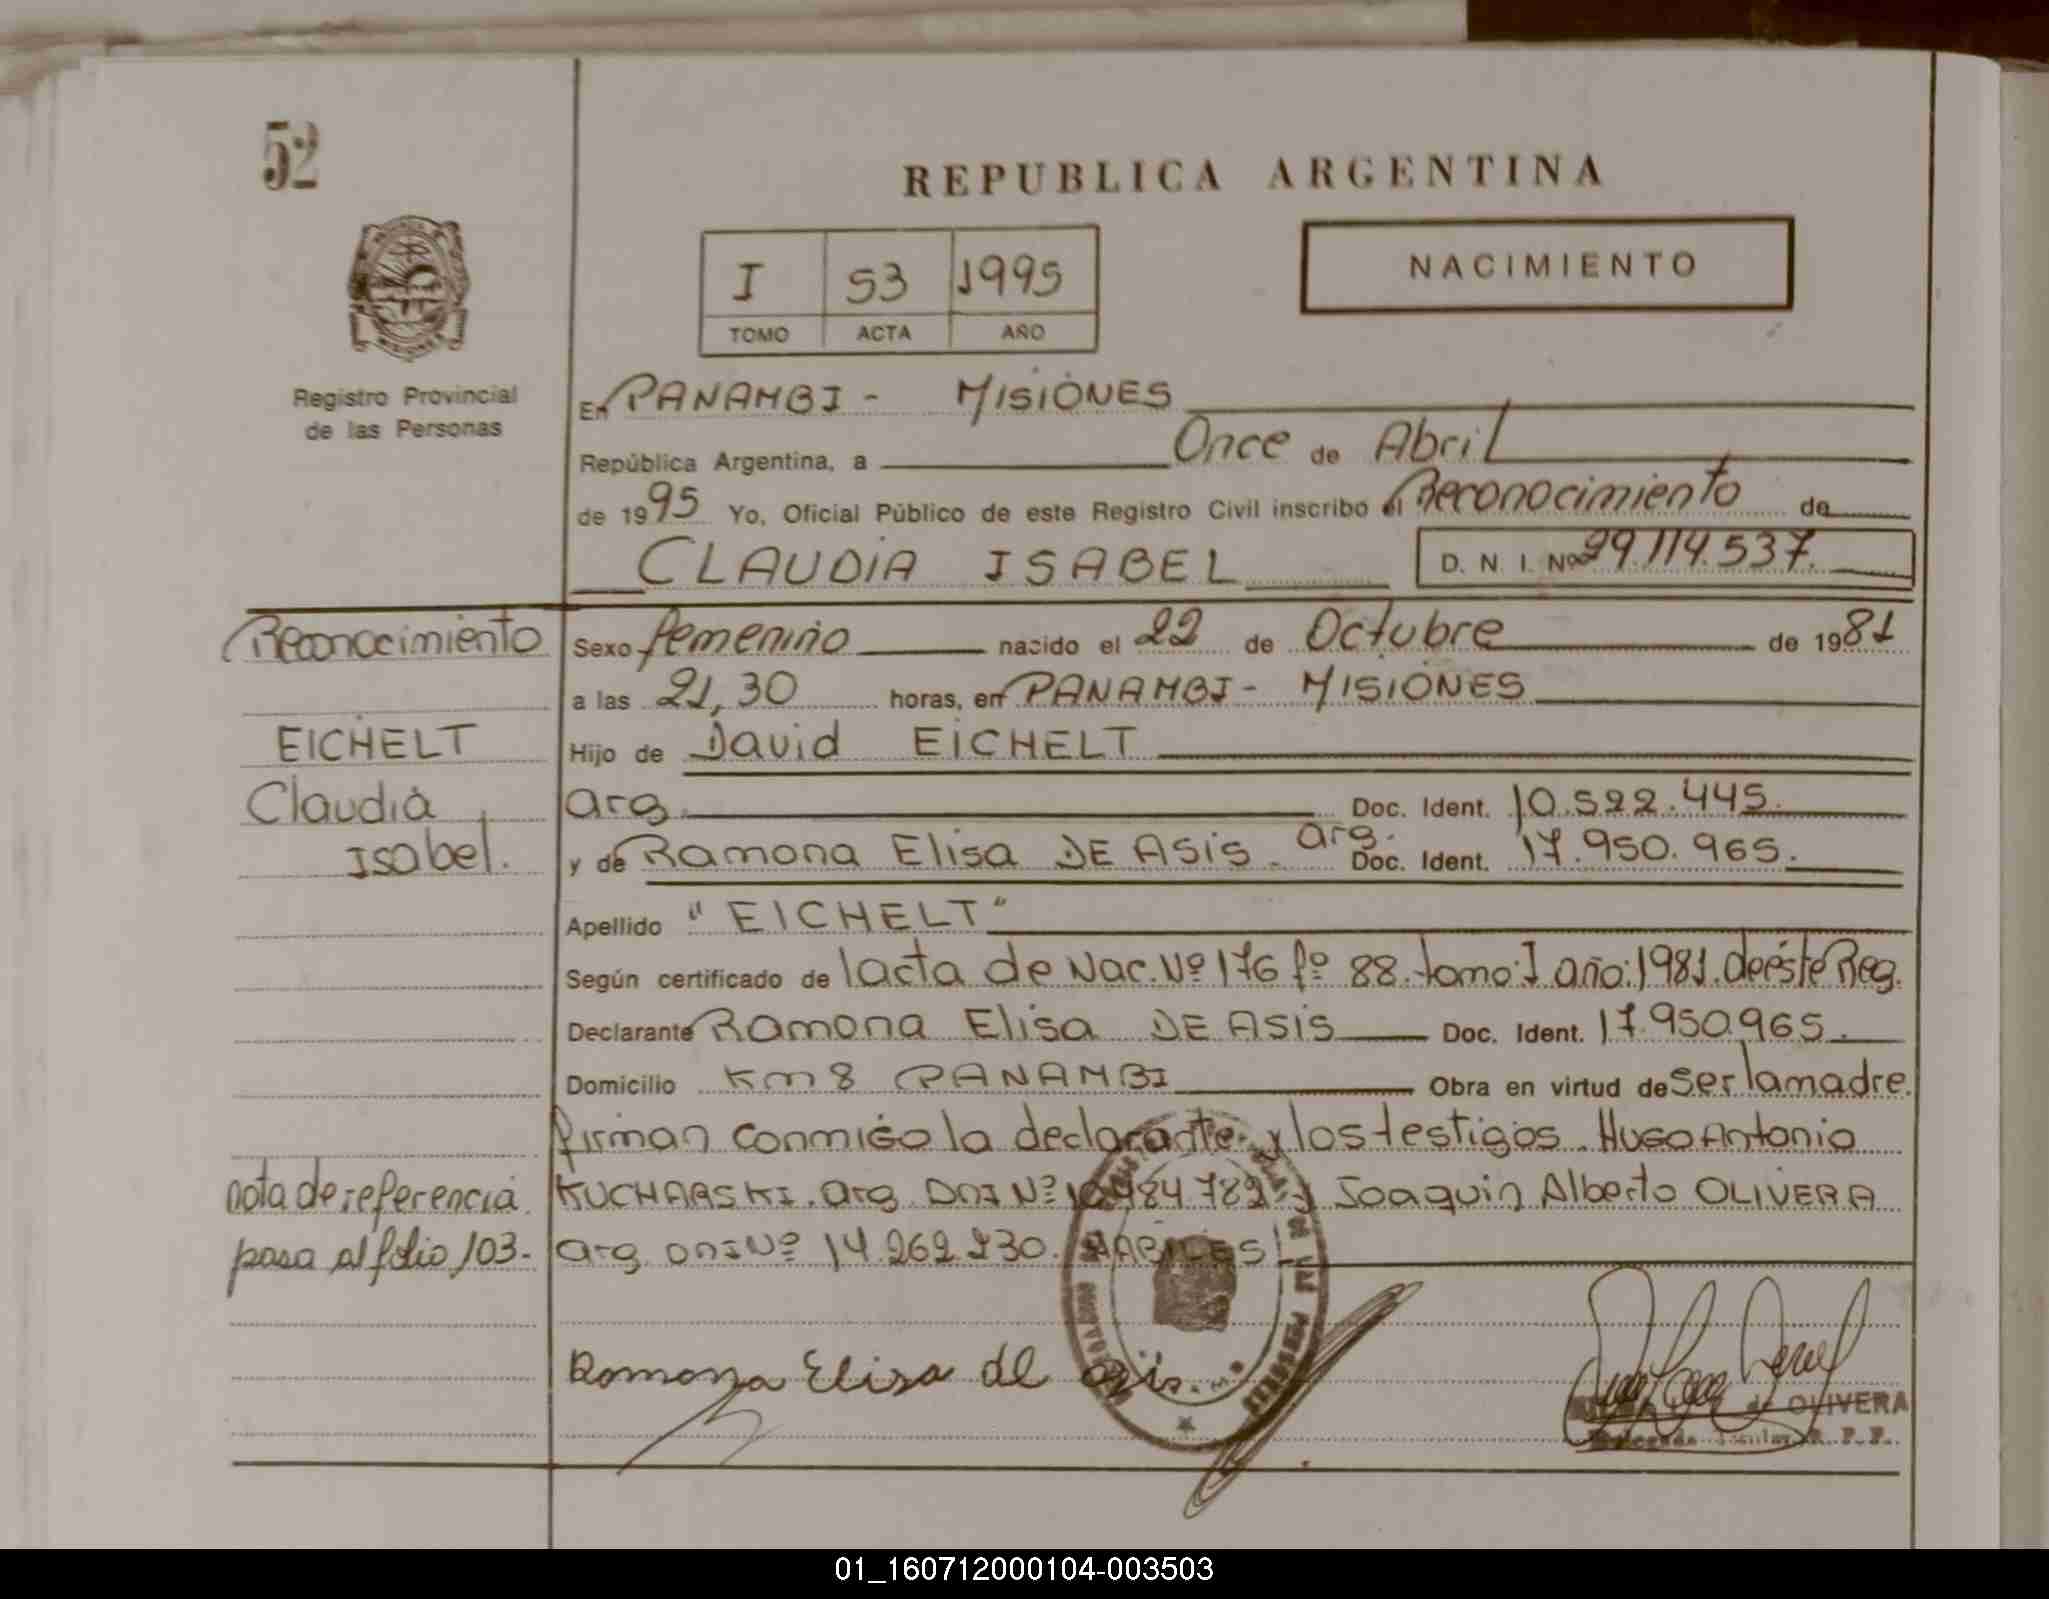 52
REPUBLICA ARGENTINA
NACIMIENTO
I 53 1995
TOMO ACTA AÑO
Registro Provincial
de las Personas
En PANAMBI - MISIONES
República Argentina, a Once de Abril
de 1995 Yo, Oficial Público de este Registro Civil inscribo el Reconocimiento de
CLAUDIA ISABEL D. N. I. Nº 29.114.537.
Reconocimiento
Sexo femenino nacido el 22 de Octubre de 1981
a las 21,30 horas, en PANAMBI - MISIONES
EICHELT
Hijo de David EICHELT
Claudia
arg. Doc. Ident. 10.522.445.
Isabel.
y de Ramona Elisa DE ASIS. arg. Doc. Ident. 17.950.965.
Apellido "EICHELT"
Según certificado de lacta de Nac. Nº 176 fº 88. tomo: I año: 1981. de éste Reg.
Declarante Ramona Elisa DE ASIS Doc. Ident. 17.950965.
Domicilio Km 8 PANAMBI Obra en virtud de ser la madre.
firman conmigo la declarante y los testigos. Hugo Antonio
nota de referencia
KUCHARSKI. arg. DNI Nº 484.782 y Joaquin Alberto OLIVERA
pasa al folio 103.-
arg. DNI Nº 14.262.230. HABILES
Ramona Elisa de asis.
de OLIVERA
R. P. P.
01_160712000104-003503